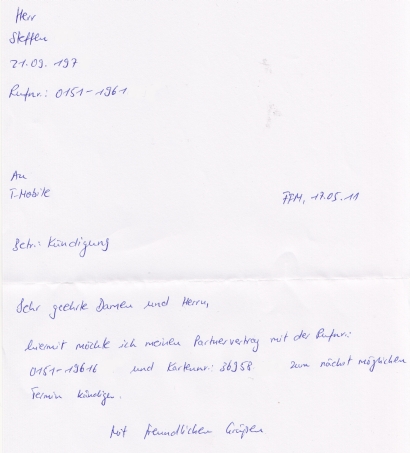 Herr
Steffen
21.09.197
Rufnr.: 0151-1961
An
T-Mobile
FFM, 17.05.11
Betr.: Kündigung
Sehr geehrte Damen und Herrn,
hiermit möchte ich meinen Partnervertrag mit der Rufnr.:
0151-19616 und Kartennr.: 36958 zum nächst möglichen
Termin kündigen.
Mit freundlichen Grüßen